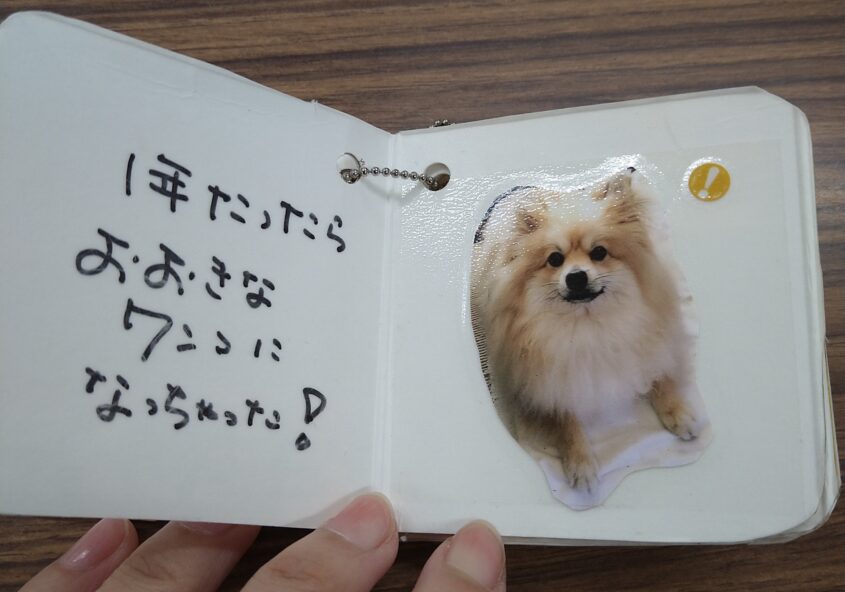 1年たったら
おおきな
ワンコに
なっちゃった!
!